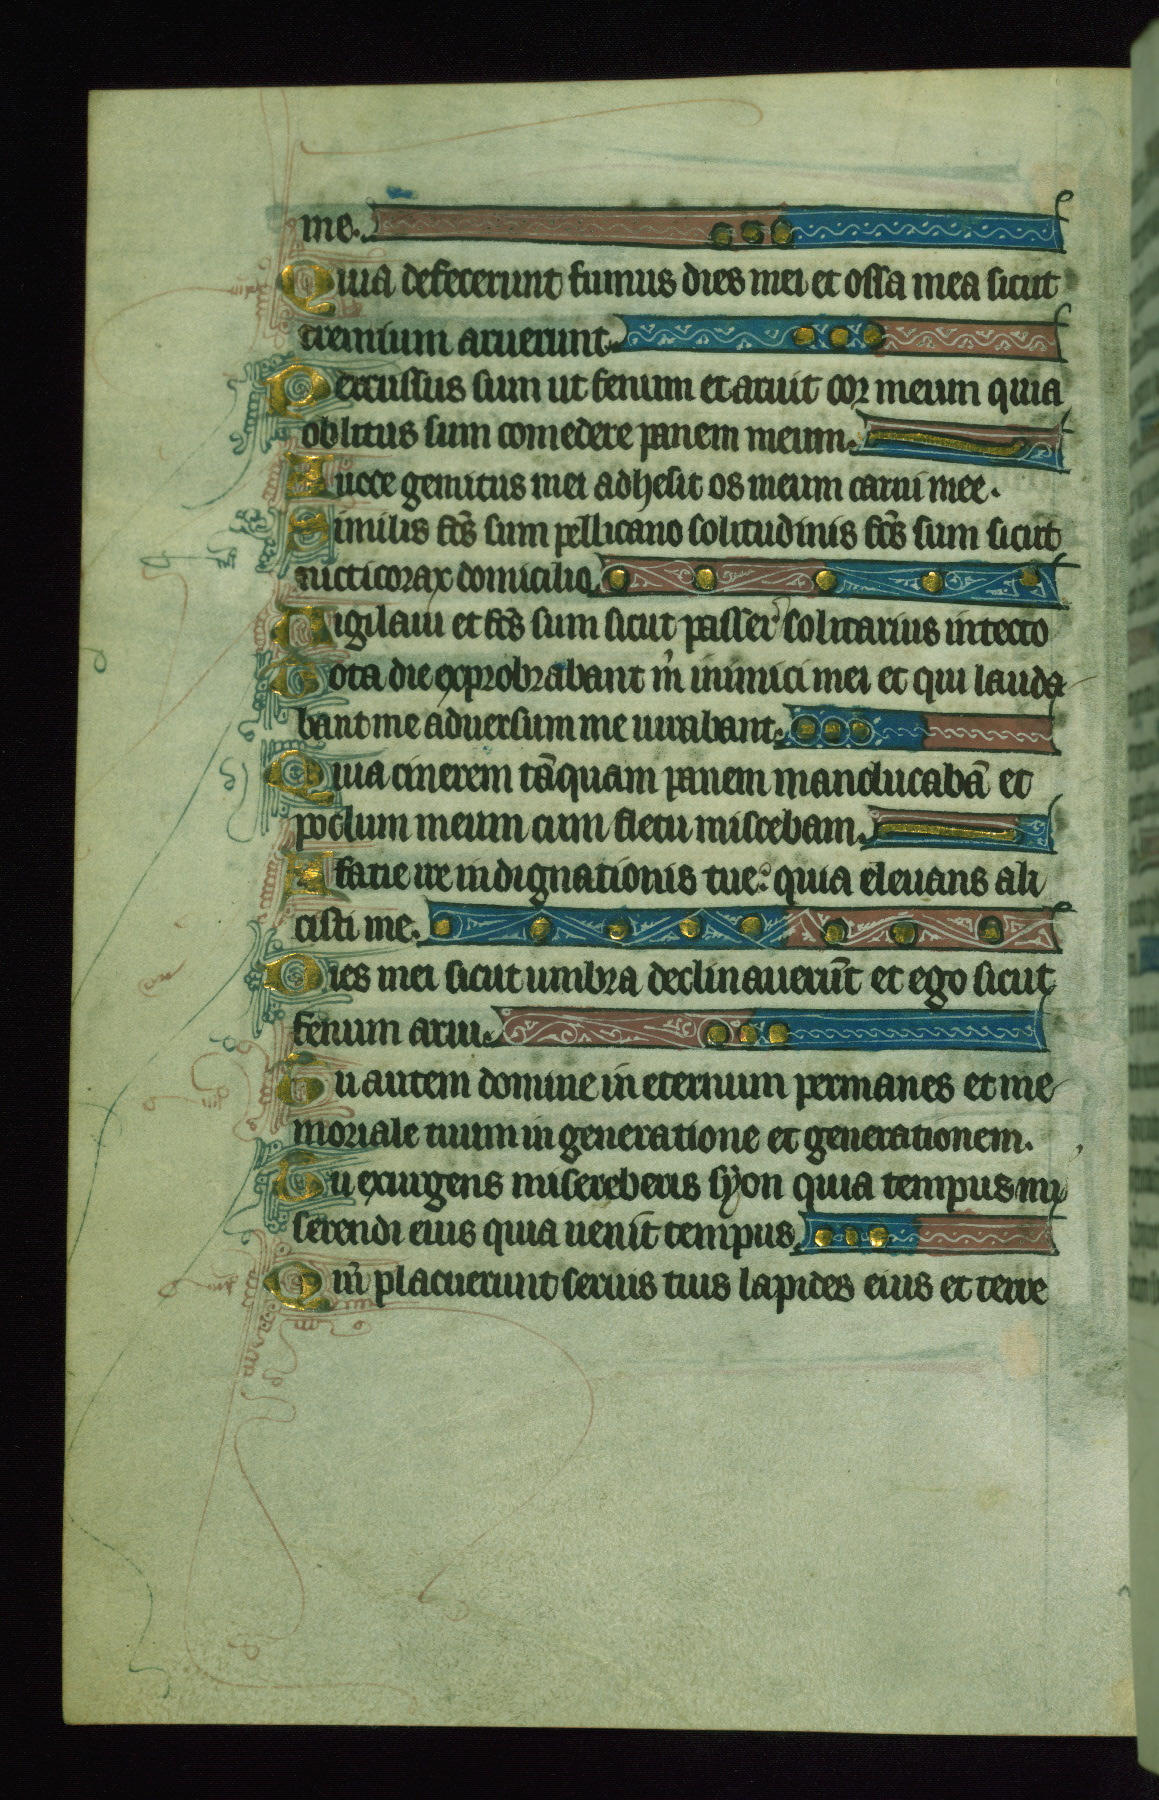 me.
Quia defecerunt fumus dies mei et ossa mea sicut
cremium aruerunt.
Percussus sum ut fenum et aruit cor meum quia
oblitus sum comedere panem meum.
A uoce gemitus mei adhesit os meum carni mee.
Similis fc̄s sum pellicano solitudinis fc̄s sum sicut
nicticorax domicilio.
Vigilaui et fc̄s sum sicut passer solitarius intecto
Tota die exprobrabant m̄ inimici mei et qui lauda
bant me aduersum me iurabant.
Quia cinerem tāquam panem manducabā et
poclum meum cum fletu miscebam.
A facie ire indignationis tue: quia eleuans ali
cisti me.
Dies mei sicut umbra declinauerūt et ego sicut
fenum arui.
Tu autem domine in eternum permanes et me
moriale tuum in generatione et generationem.
Tu exurgens misereberis syon quia tempus mi
serendi eius quia uenit tempus.
Qm̄ placuerunt seruis tuis lapides eius et terre